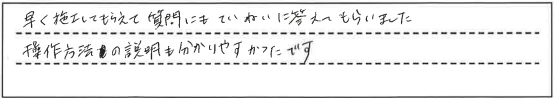 早く施工してもらえて質問にもていねいに答えてもらいました
操作方法の説明も分かりやすかったです